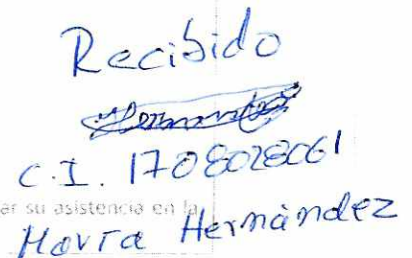 Recibido
Hernández
C.I. 1708028061
ar su asistencia en la
Mayra Hernández